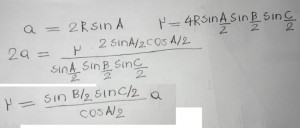 a = 2RsinA r = 4R sin A/2 sin B/2 sin C/2
2a = r 2 sinA/2 cosA/2 / sin A/2 sin B/2 sin C/2
r = sin B/2 sin C/2 / cos A/2 a